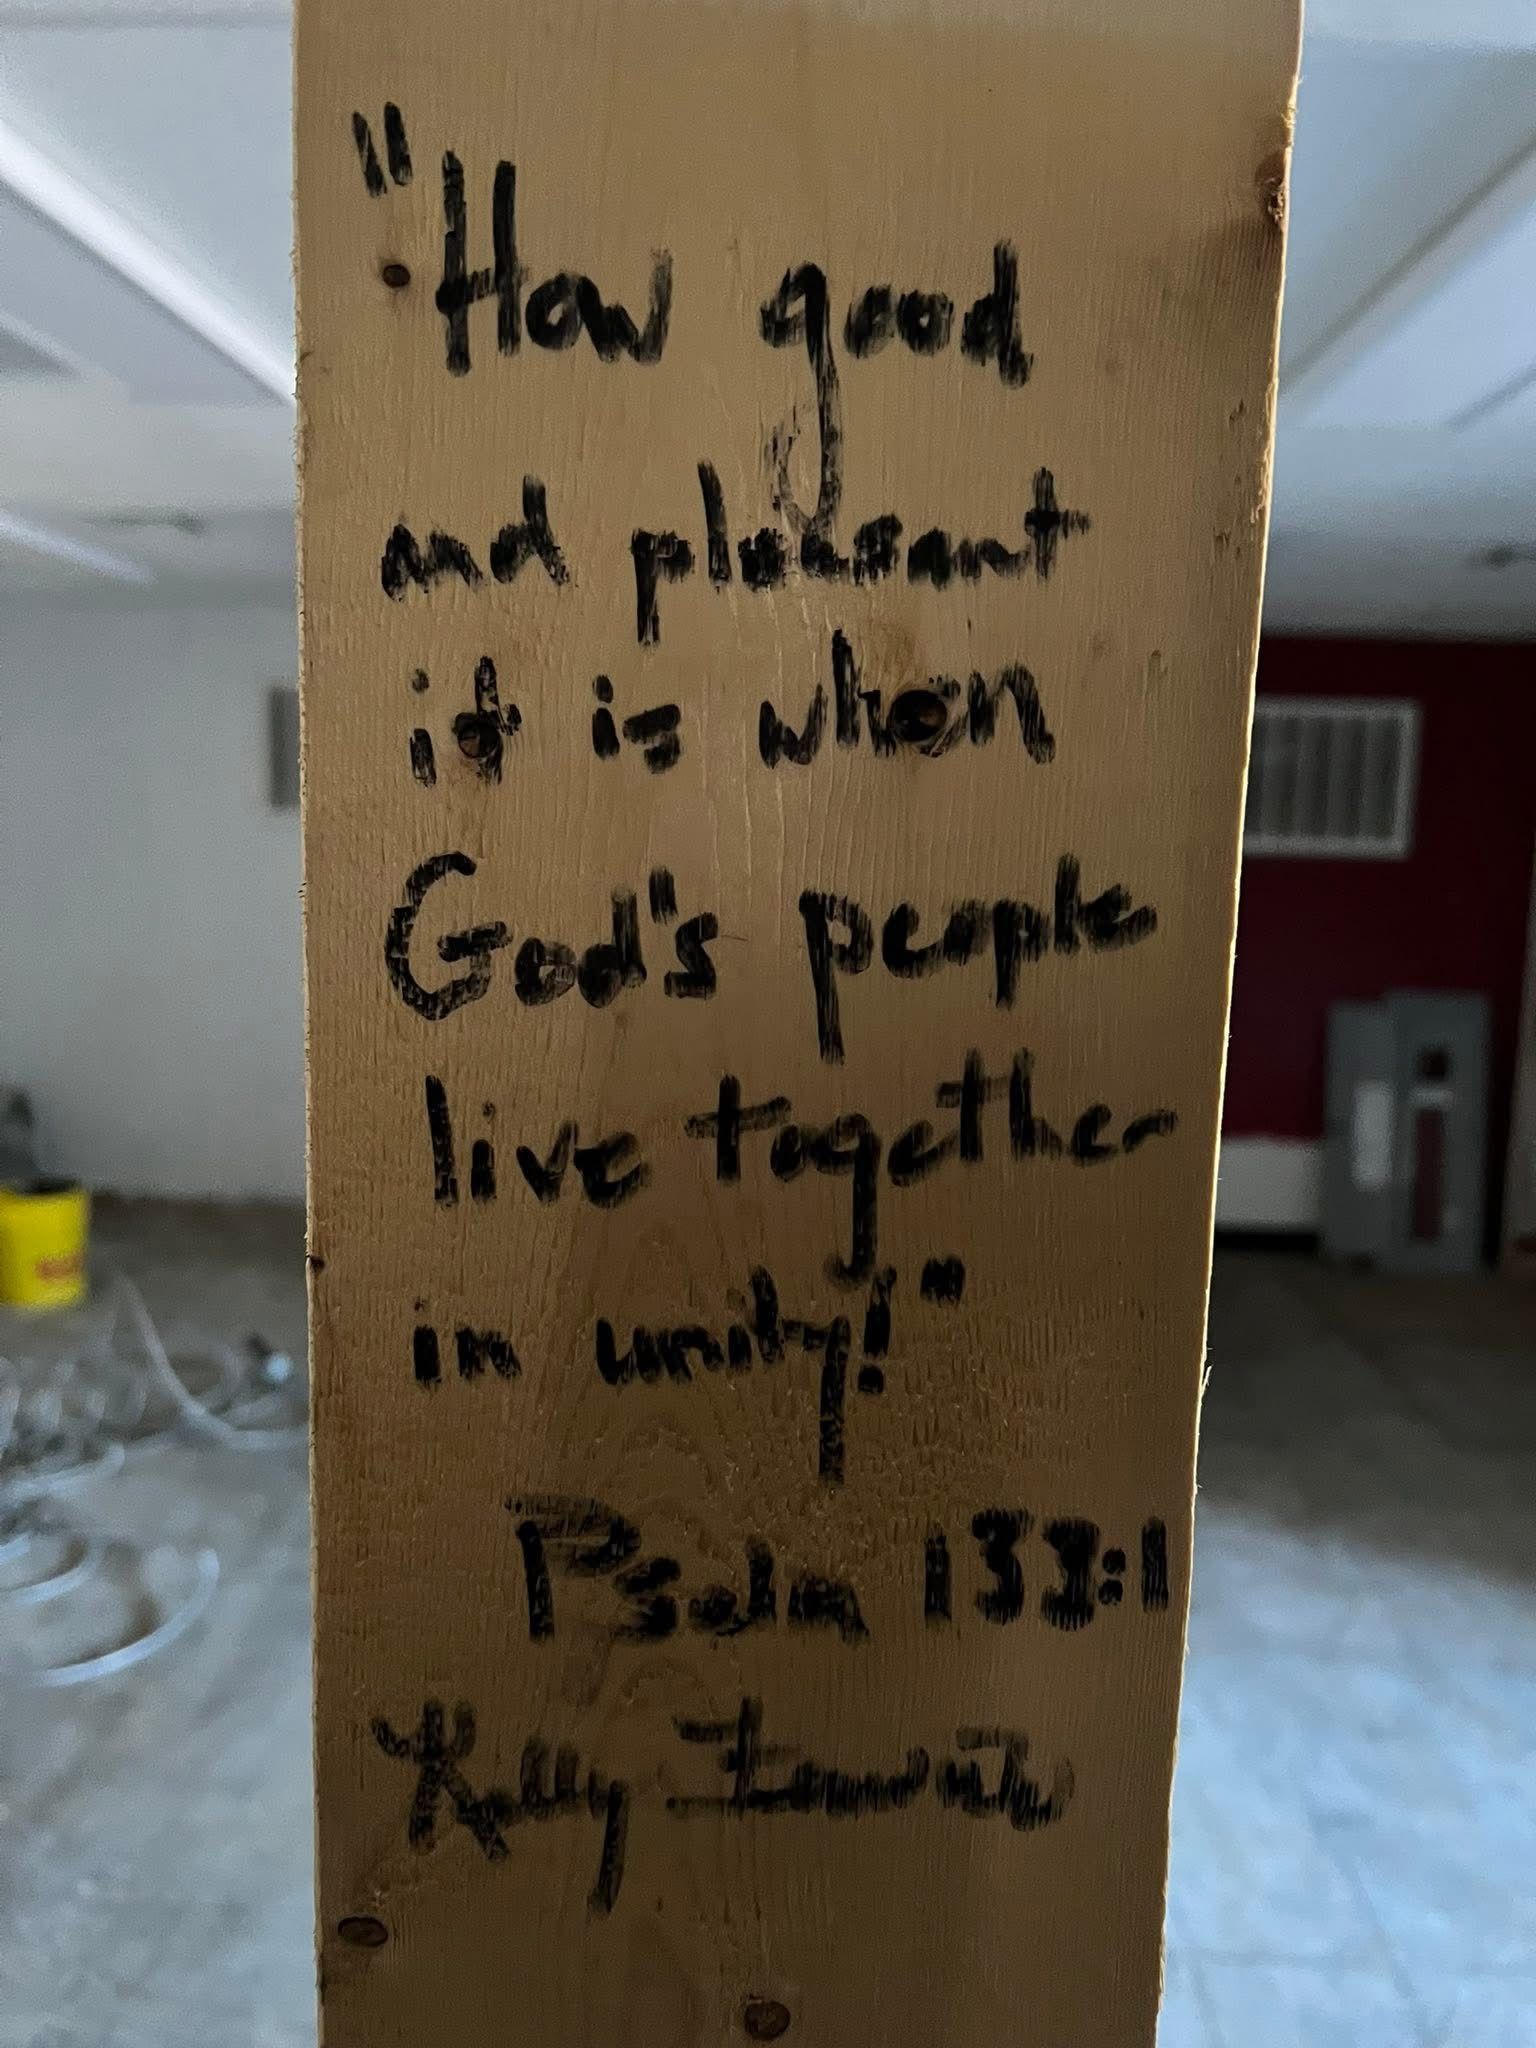 "How good
and pleasant
it is when
God's people
live together
in unity!"
Psalm 133:1
Kelly